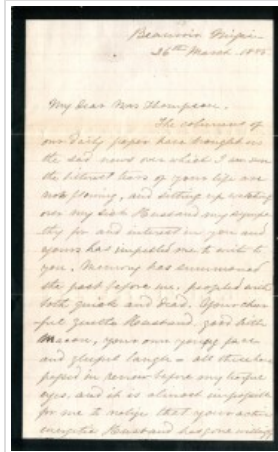 26th March 1885
My dear Mrs Thompson.
The columns of
our daily paper have brought us
the sad news over which I am sure
the bitterest tears of your life are
now flowing, and sitting up watching
over my sick Husband my sympa
thy for and interest in you and
yours has impelled me to write to
you. Memory has summoned
the past before me, peopled with
both quick and dead. Your cheer
ful gentle Husband, good
Macon, your own young face
and gleeful laugh - all
passed in review before my tearful
eyes, and it is almost impossible
for me to realize that your
energetic Husband has gone